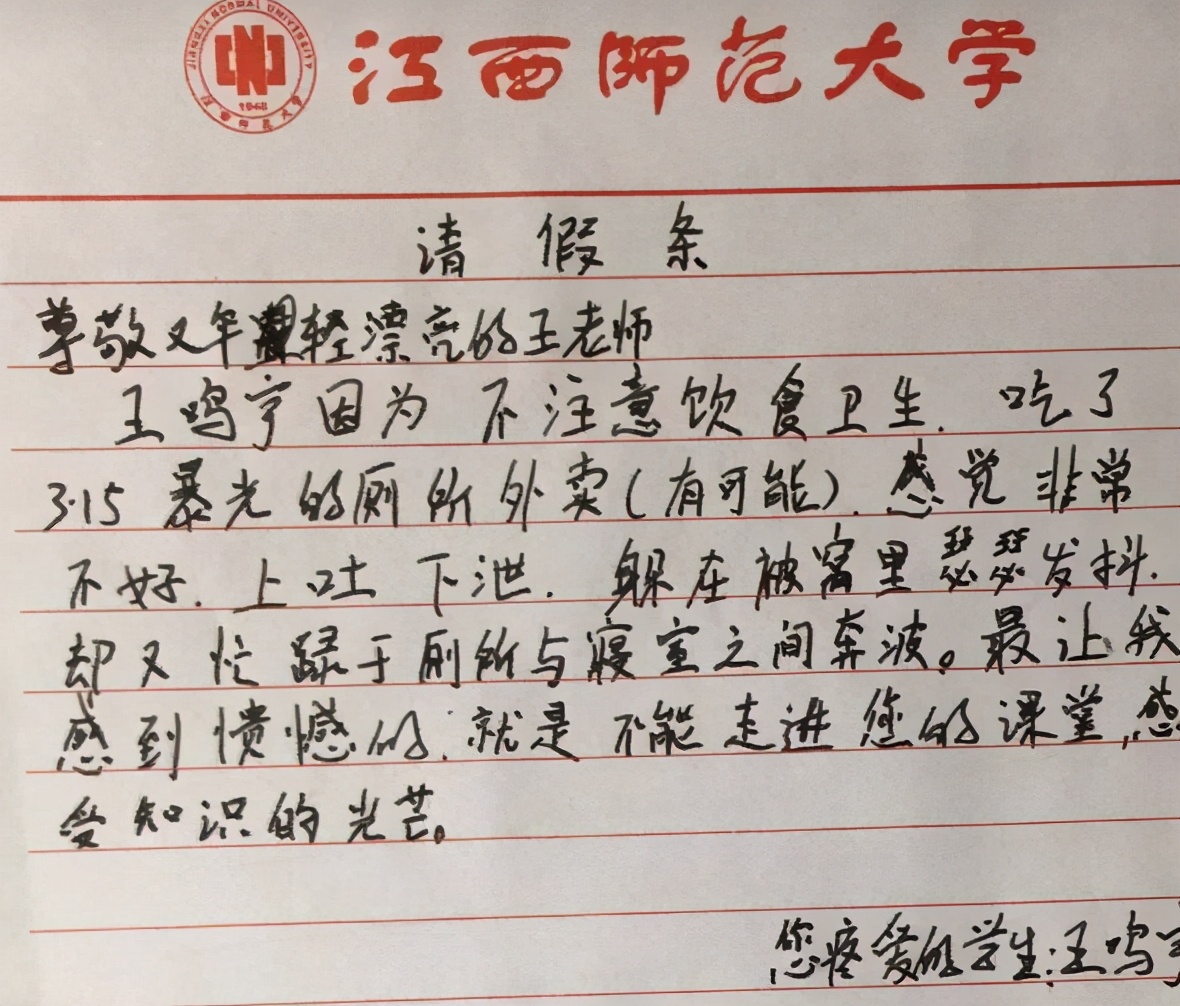 JIANGXI NORMAL UNIVERSITY
江西师范大学
请假条
尊敬又年轻漂亮的王老师
王鸣亨因为不注意饮食卫生.吃了
3·15暴光的厕所外卖(有可能).感觉非常
不好.上吐下泄.躲在被窝里瑟瑟发抖.
却又忙碌于厕所与寝室之间奔波。最让我
感到愤憾的.就是不能走进您的课堂,感
受知识的光芒。
您疼爱的学生:王鸣亨